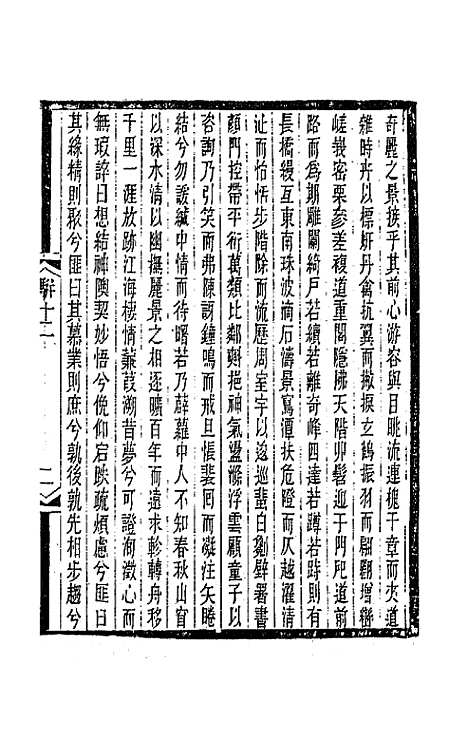 奇麗之景接乎其前心游容與目眺流連槐千章而夾道
雜時卉以標姸丹禽抗翼而撇捩玄鶴振羽而翩翻增
嵯峩密栗參差複道重閣隱佛天階丱髫迎于門戺道前
路而爲期雕闌綺戶若續若離奇峰四達若蹲若跱則有
長橋緩互東南珠波漰石濤景寫潭扶危磴而仄越濯清
沚而怡恬步階除而流歴周室宇以逡巡蜚白劙辟署書
顏門控帶平衍萬類比鄰輿挹神氣盥滌浮雲顧童子以
咨詢乃引笑而弗陳訝鐘鳴而戒旦悵裴囘而凝注矢睠
結兮勿諼緘中情而待曙若乃薜蘿中人不知春秋山宵
以深水清以幽撫麗景之相逐曠百年而遠求軫轉舟移
千里一涯放跡江海棲情蒹葭湖昔夢兮可證洵澂心而
無瑕誶曰想結神陶契妙悟兮俛仰宕昳疏煩慮兮匪日
其緣精則聚兮匪日其慕業則庶兮孰後孰先相步趨兮
駢十二
二